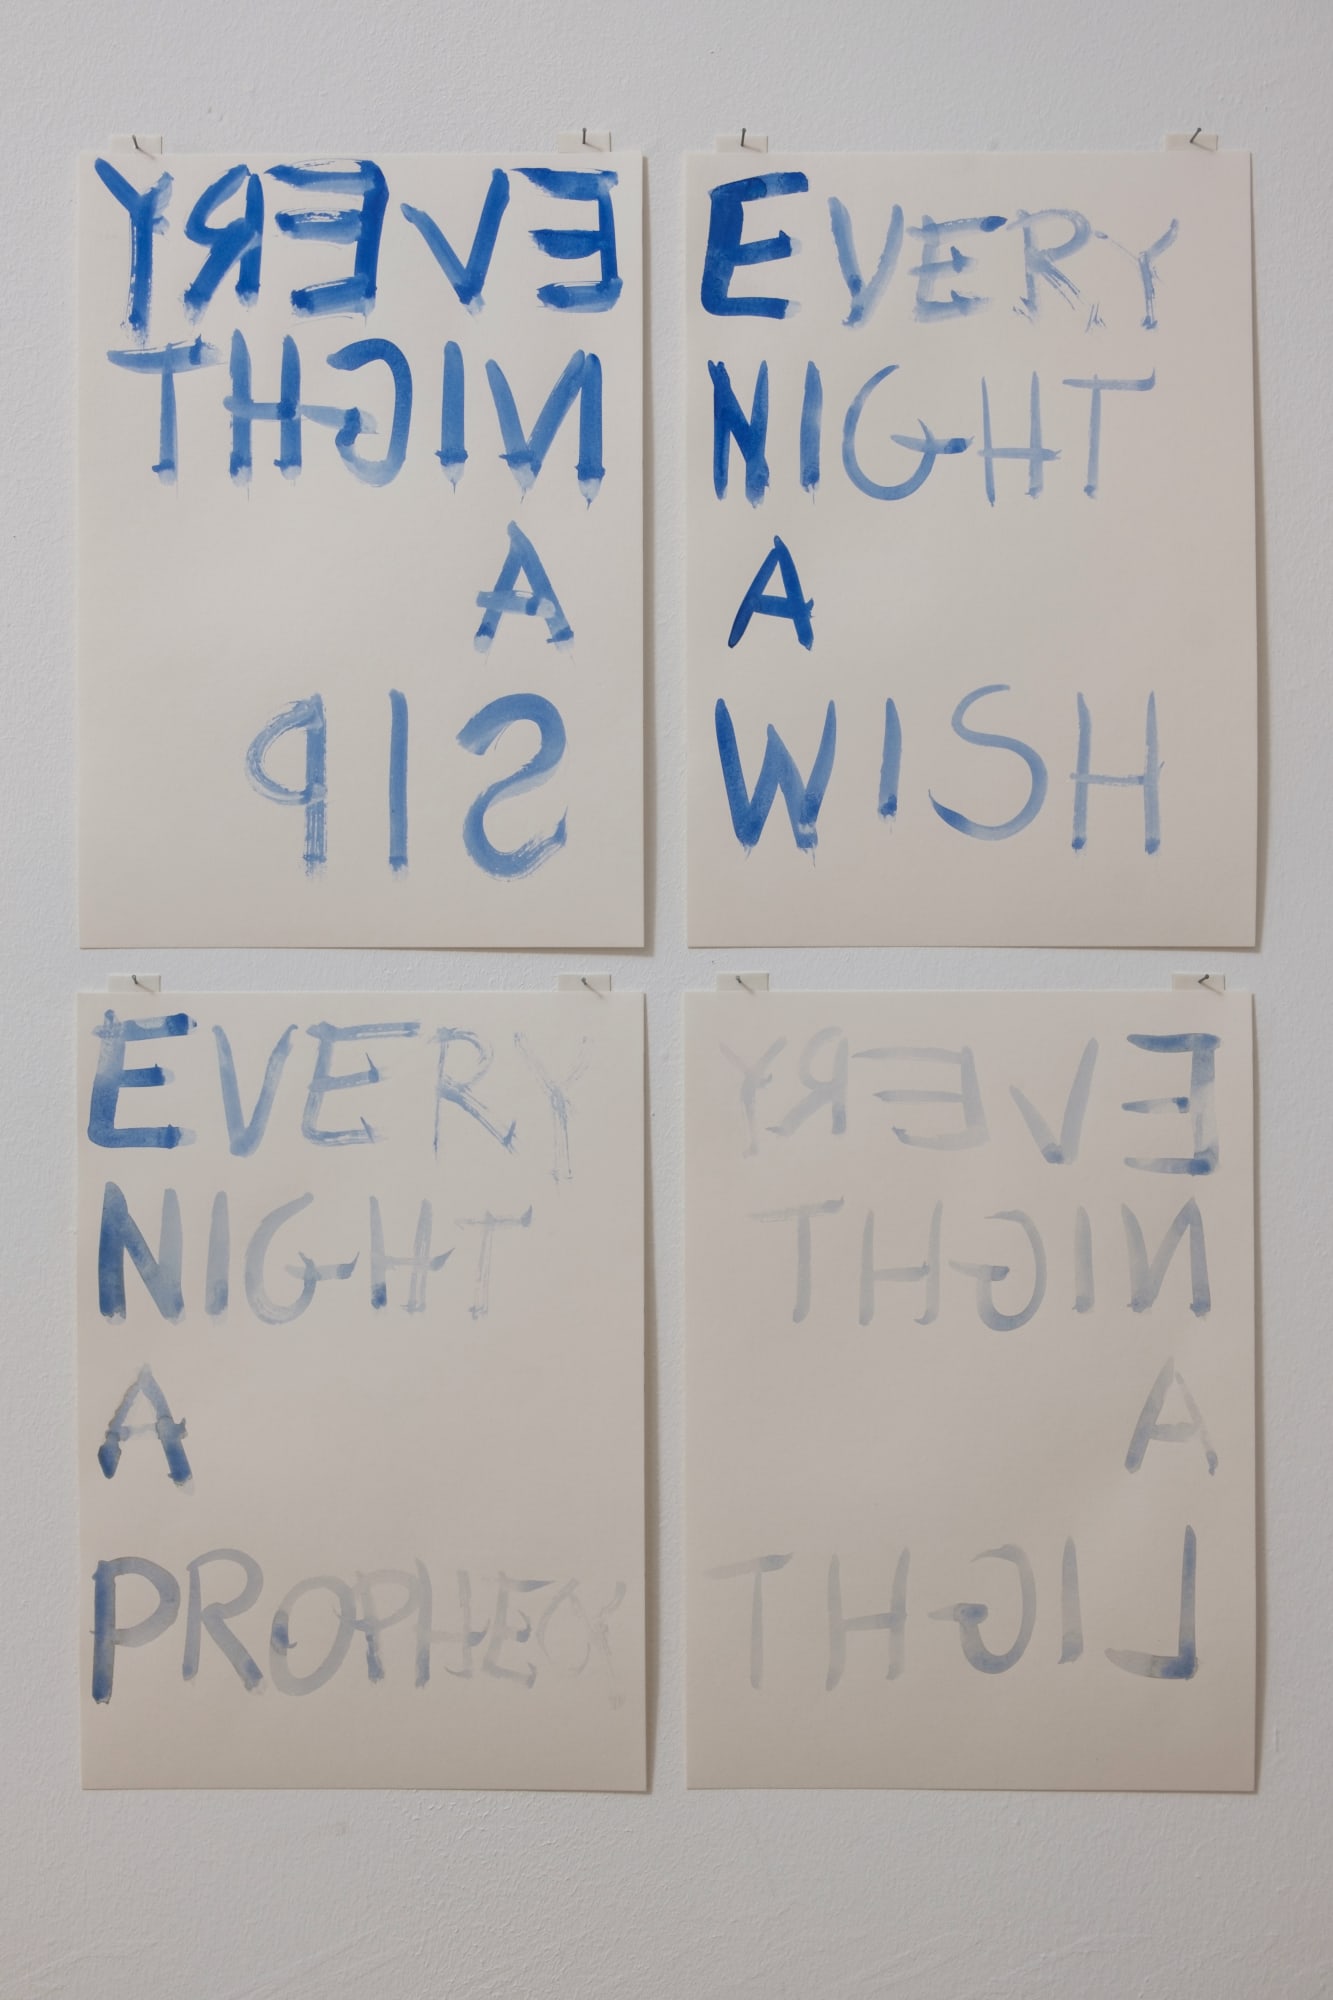 EVERY
NIGHT
A
SIP
EVERY
NIGHT
A
WISH
EVERY
NIGHT
A
PROPHECY
EVERY
NIGHT
A
LIGHT